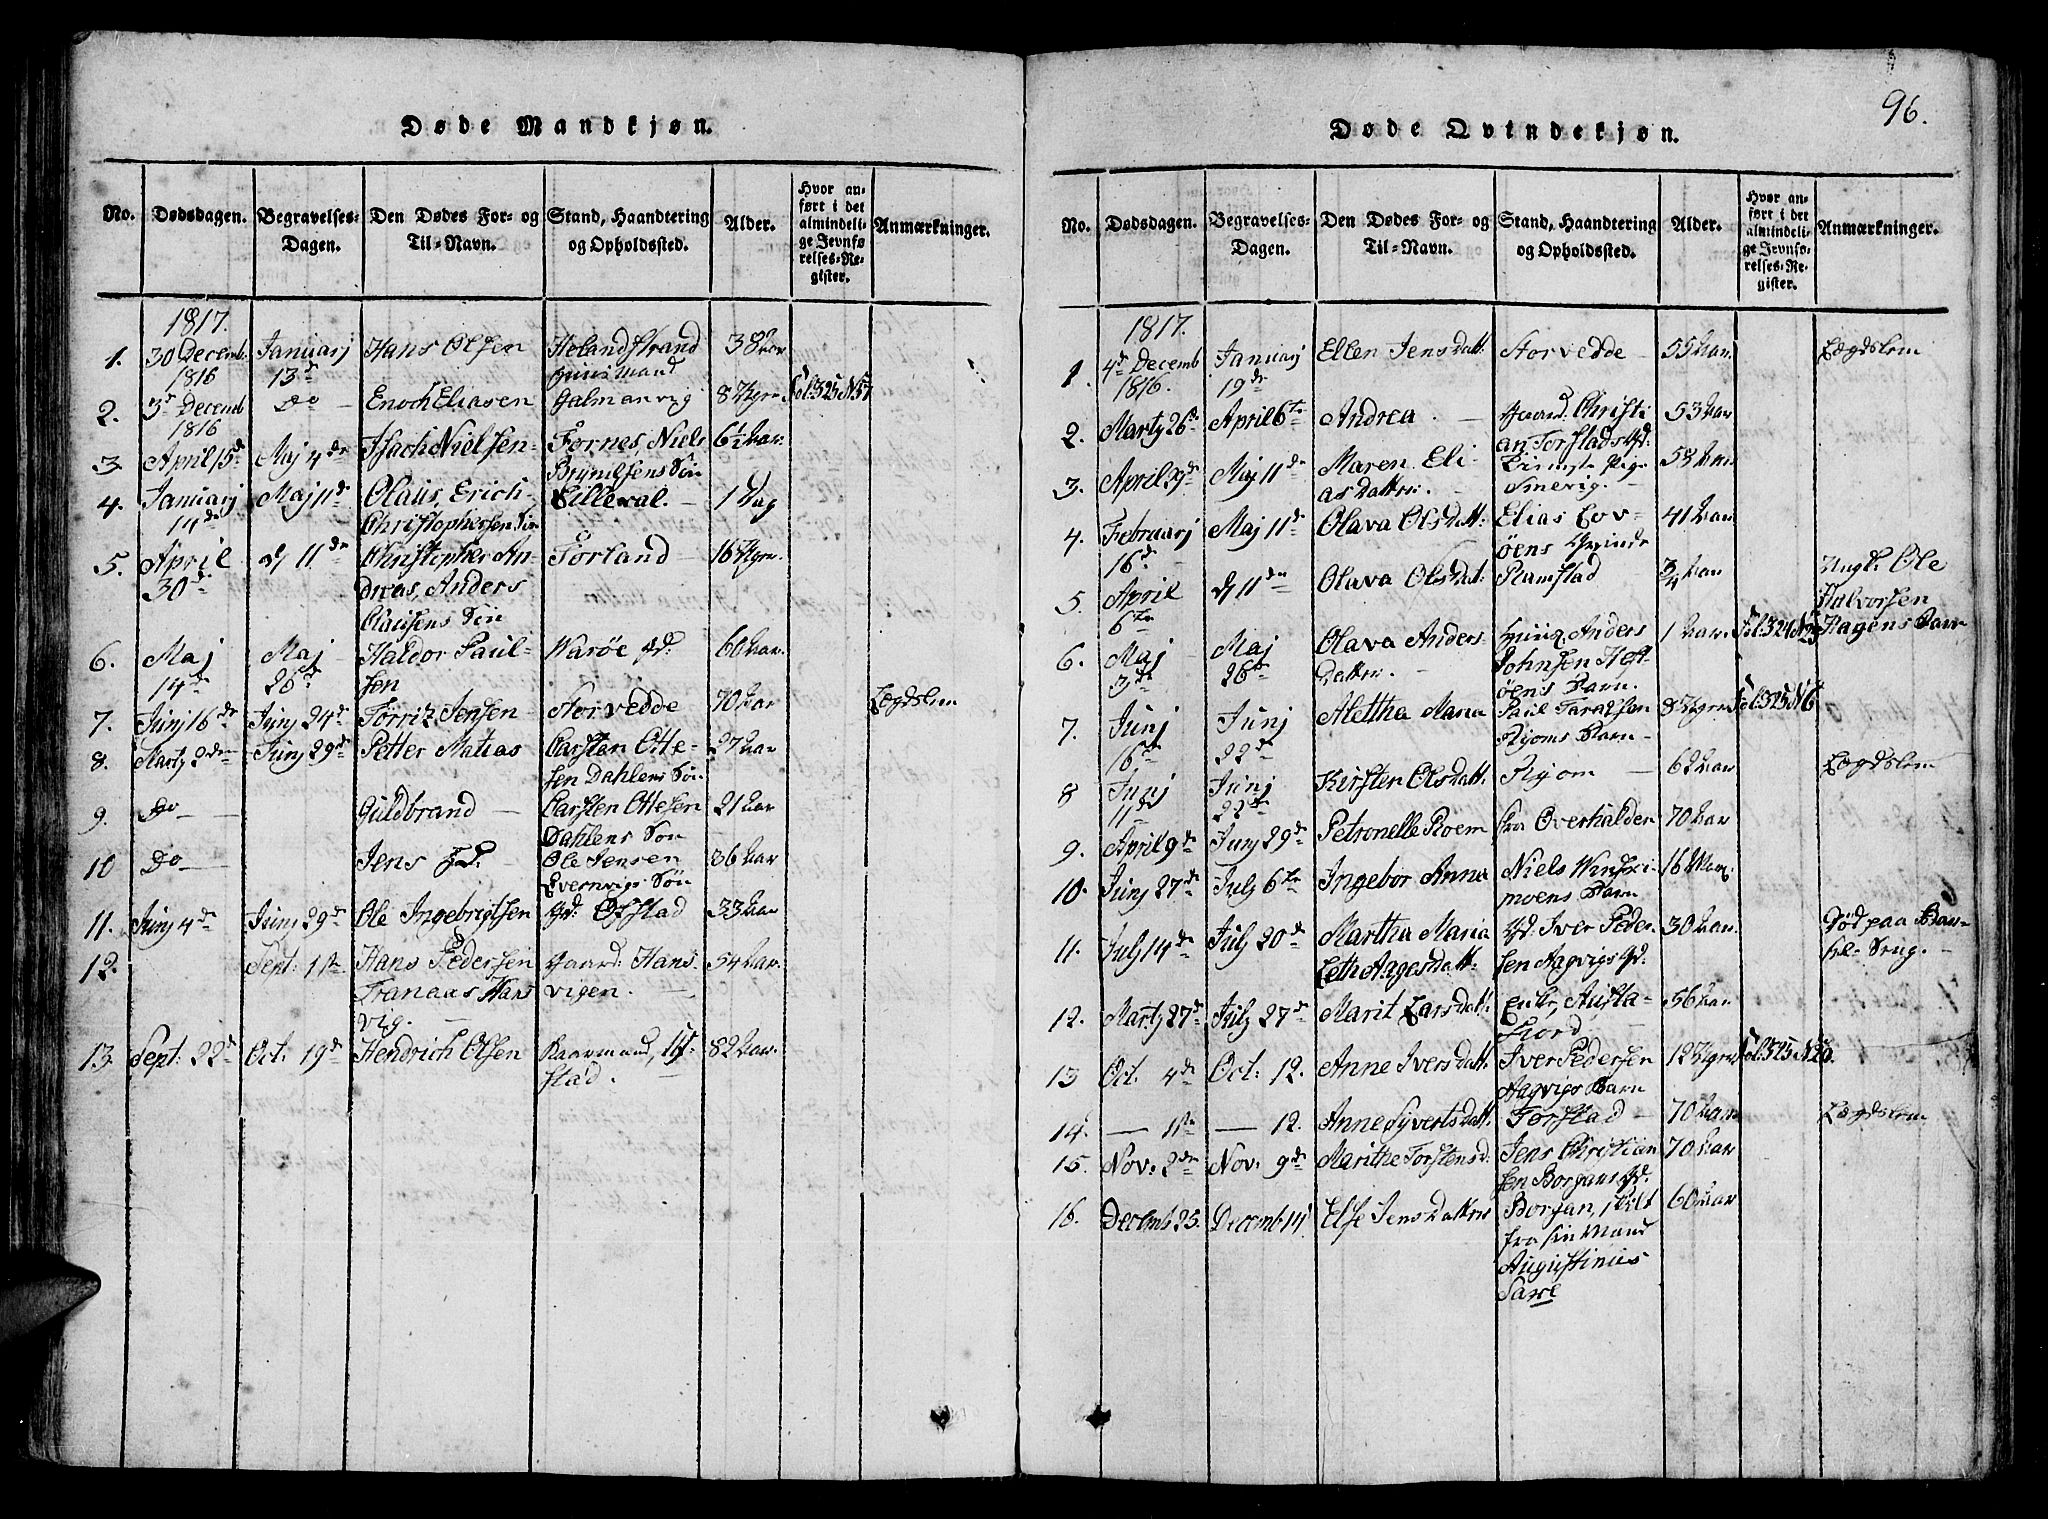 96.
Døde Mandkjøn.
No. Dødsdagen. Begravelses-Dagen. Den Dødes For- og Til-Navn. Stand, Haandtering og Opholdssted. Alder. Hvor anført i det almindelige Jevnførelses-Register. Anmærkninger.
1817.
1. 30 Decemb. 1816 Januarj 13de Hans Olsen Holandstrand 38 Aar
2. 3de Decemb 1816 Do Enoch Eliasen Galmanvig 8 Uger Fol. 325 N 57
3. April 15de Maj 4de Isach Nielsen Fornes, Niels Brynilsens Søn 6½ Aar
4. Januarj 14de Maj 11de Olaus, Erich Christophersen Søn Lilleval. 1 Dag
5. April 30de 11de Christopher Andreas, Anders Clausens Søn Forland 16 Uger.
6. Maj 14de Maj 26de Haldor Paulsen Warøe Gd: 66 Aar.
7. Junj 16de Junj 24de Torriz Jensen Storvedde 70 Aar Lægdslem
8. Marty 2den Junj 29de Petter Matias Carsten Ottesen Dahlens Søn 27 Aar
9. Do Guldbrand Carsten Ottesen Dahlens Søn 21 Aar
10 Do Jens Ole Jensen Søn 36 Aar
11. Junj 4de Junj 29de Ole Ingebrigtsen Gd: Ofstad 33 Aar
12. Sept: 1ste Hans Pedersen Tranaas Hansvig. Gaard: Hansvigen. 54 Aar.
13. Sept: 22de Oct: 19de Hendrich Olsen 82 Aar.
Døde Qvindekjøn.
No. Dødsdagen. Begravelses-Dagen. Den Dødes For- og Til-Navn. Stand, Haandtering og Opholdssted. Alder. Hvor anført i det almindelige Jevnførelses-Register. Anmærkninger.
1817.
1. 4de Decemb 1816. Januarj 19de Ellen Jensdatt: Storvedde 55 Aar Lægdslem
2. Marty 26de April 6te Andrea Gaard. Christian Torstads Gd: 53 Aar
3. April 29de Maj 11de Maren Eliasdatter. Smevig. 58 Aar
4. Februarj 16de Maj 11de Olava Olsdatt: Elias Lovøens Qvinde 41 Aar
5. April 6te 11de Olava Olsdat: Ramstad ¾ Aar Ungk. Ole Halvorsen Hagens Barn
6. Maj 3de Maj 26de Olava Andersdatter. Anders Johnsen Hestøens Barn. 1 Aar. Fol. 324 N
7. Junj 16de Junj 22de Alettha Maria Paul Ryoms Barn 8 Uger Fol. 325 N 6
8 Junj 11te Junj 22de Kirsten Olsdatt. Ryom 62 Aar Lægdslem
9. April 9de Junj 29de Petronelle Roem fra Overhalden 70 Aar
10. Junj 27de July 6te Ingebor Anna Niels moens Barn 16 Aar.
11. July 14de July 20de Martha Maria Aagesdatt: Gd: Iver Pedersen Aagvigs Gd: 30 Aar. Død paa Barsel-Seng.
12. Marty 27de July 27de Marit Larsdatt: Enke, Austafjord 56 Aar
13 Oct. 4de Oct: 12. Anne Iversdatt. Iver Pedersen Aagvigs Barn 12 Uger Fol. 325 N 20.
14. — 11te — 12. Anne Syvertsdatt. Torstad 70 Aar Lægdslem
15. Nov: 2de Nov: 9de Marithe Torstensd: Jens Christiansen Borgans Gd. 70 Aar
16. Decemb 25. Decemb 14. Else Jensdatter Borgan, skilt fra sin Mand Augustinus 60 Aar